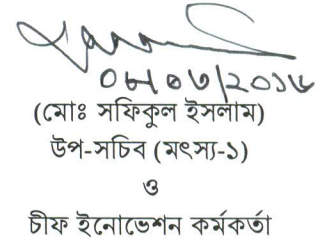 ০৮/০৩/২০১৬
(মোঃ সফিকুল ইসলাম)
উপ-সচিব (মৎস্য-১)
ও
চীফ ইনোভেশন কর্মকর্তা